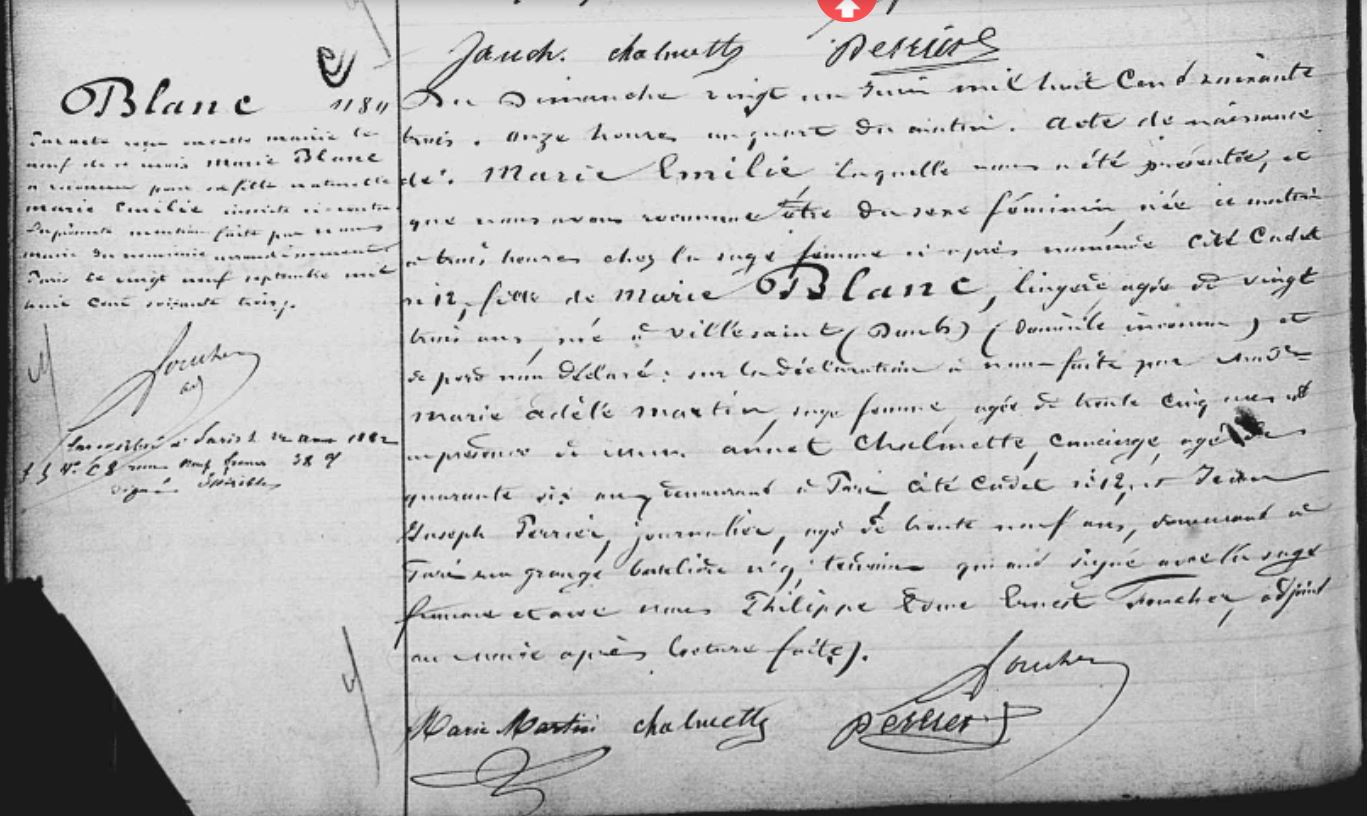 Jauch. Chalmette Perrier
Blanc 1189
Par acte reçu en cette mairie le
neuf de ce mois Marie Blanc
a reconnu pour sa fille naturelle
Marie Emilie inscrite ci-contre
La présente mention faite par nous
maire du neuvième arrondissement
Paris le vingt neuf septembre mil
huit cent soixante trois.
Foucher
adj
Paris 1882
Du Dimanche vingt un Juin mil huit Cent soixante
trois. onze heures un quart du matin. Acte de naissance
de. Marie Emilie laquelle nous a été présentée, et
que nous avons reconnue être du sexe féminin née ce matin
à trois heures chez la sage femme ci après nommée Cité Cadet
n° 12, fille de Marie Blanc, lingère agée de vingt
trois ans, née à Villesaint (Doubs) (domicile inconnu) et
de père non déclaré: sur la déclaration à nous faite par
Marie adèle Martin, sage femme, agée de trente cinq ans et
en présence de annet Chalmette, concierge, agé de
quarante six ans demeurant à Paris, Cité Cadet n° 12, et
Joseph Perrier, journalier, agé de trente neuf ans, demeurant à
Paris rue grange batelière n° 9, témoins qui ont signé avec la sage
femme et avec nous Philippe Ernest Foucher, adjoint
au maire après lecture faite).
Foucher
Marie Martin Chalmette Perrier